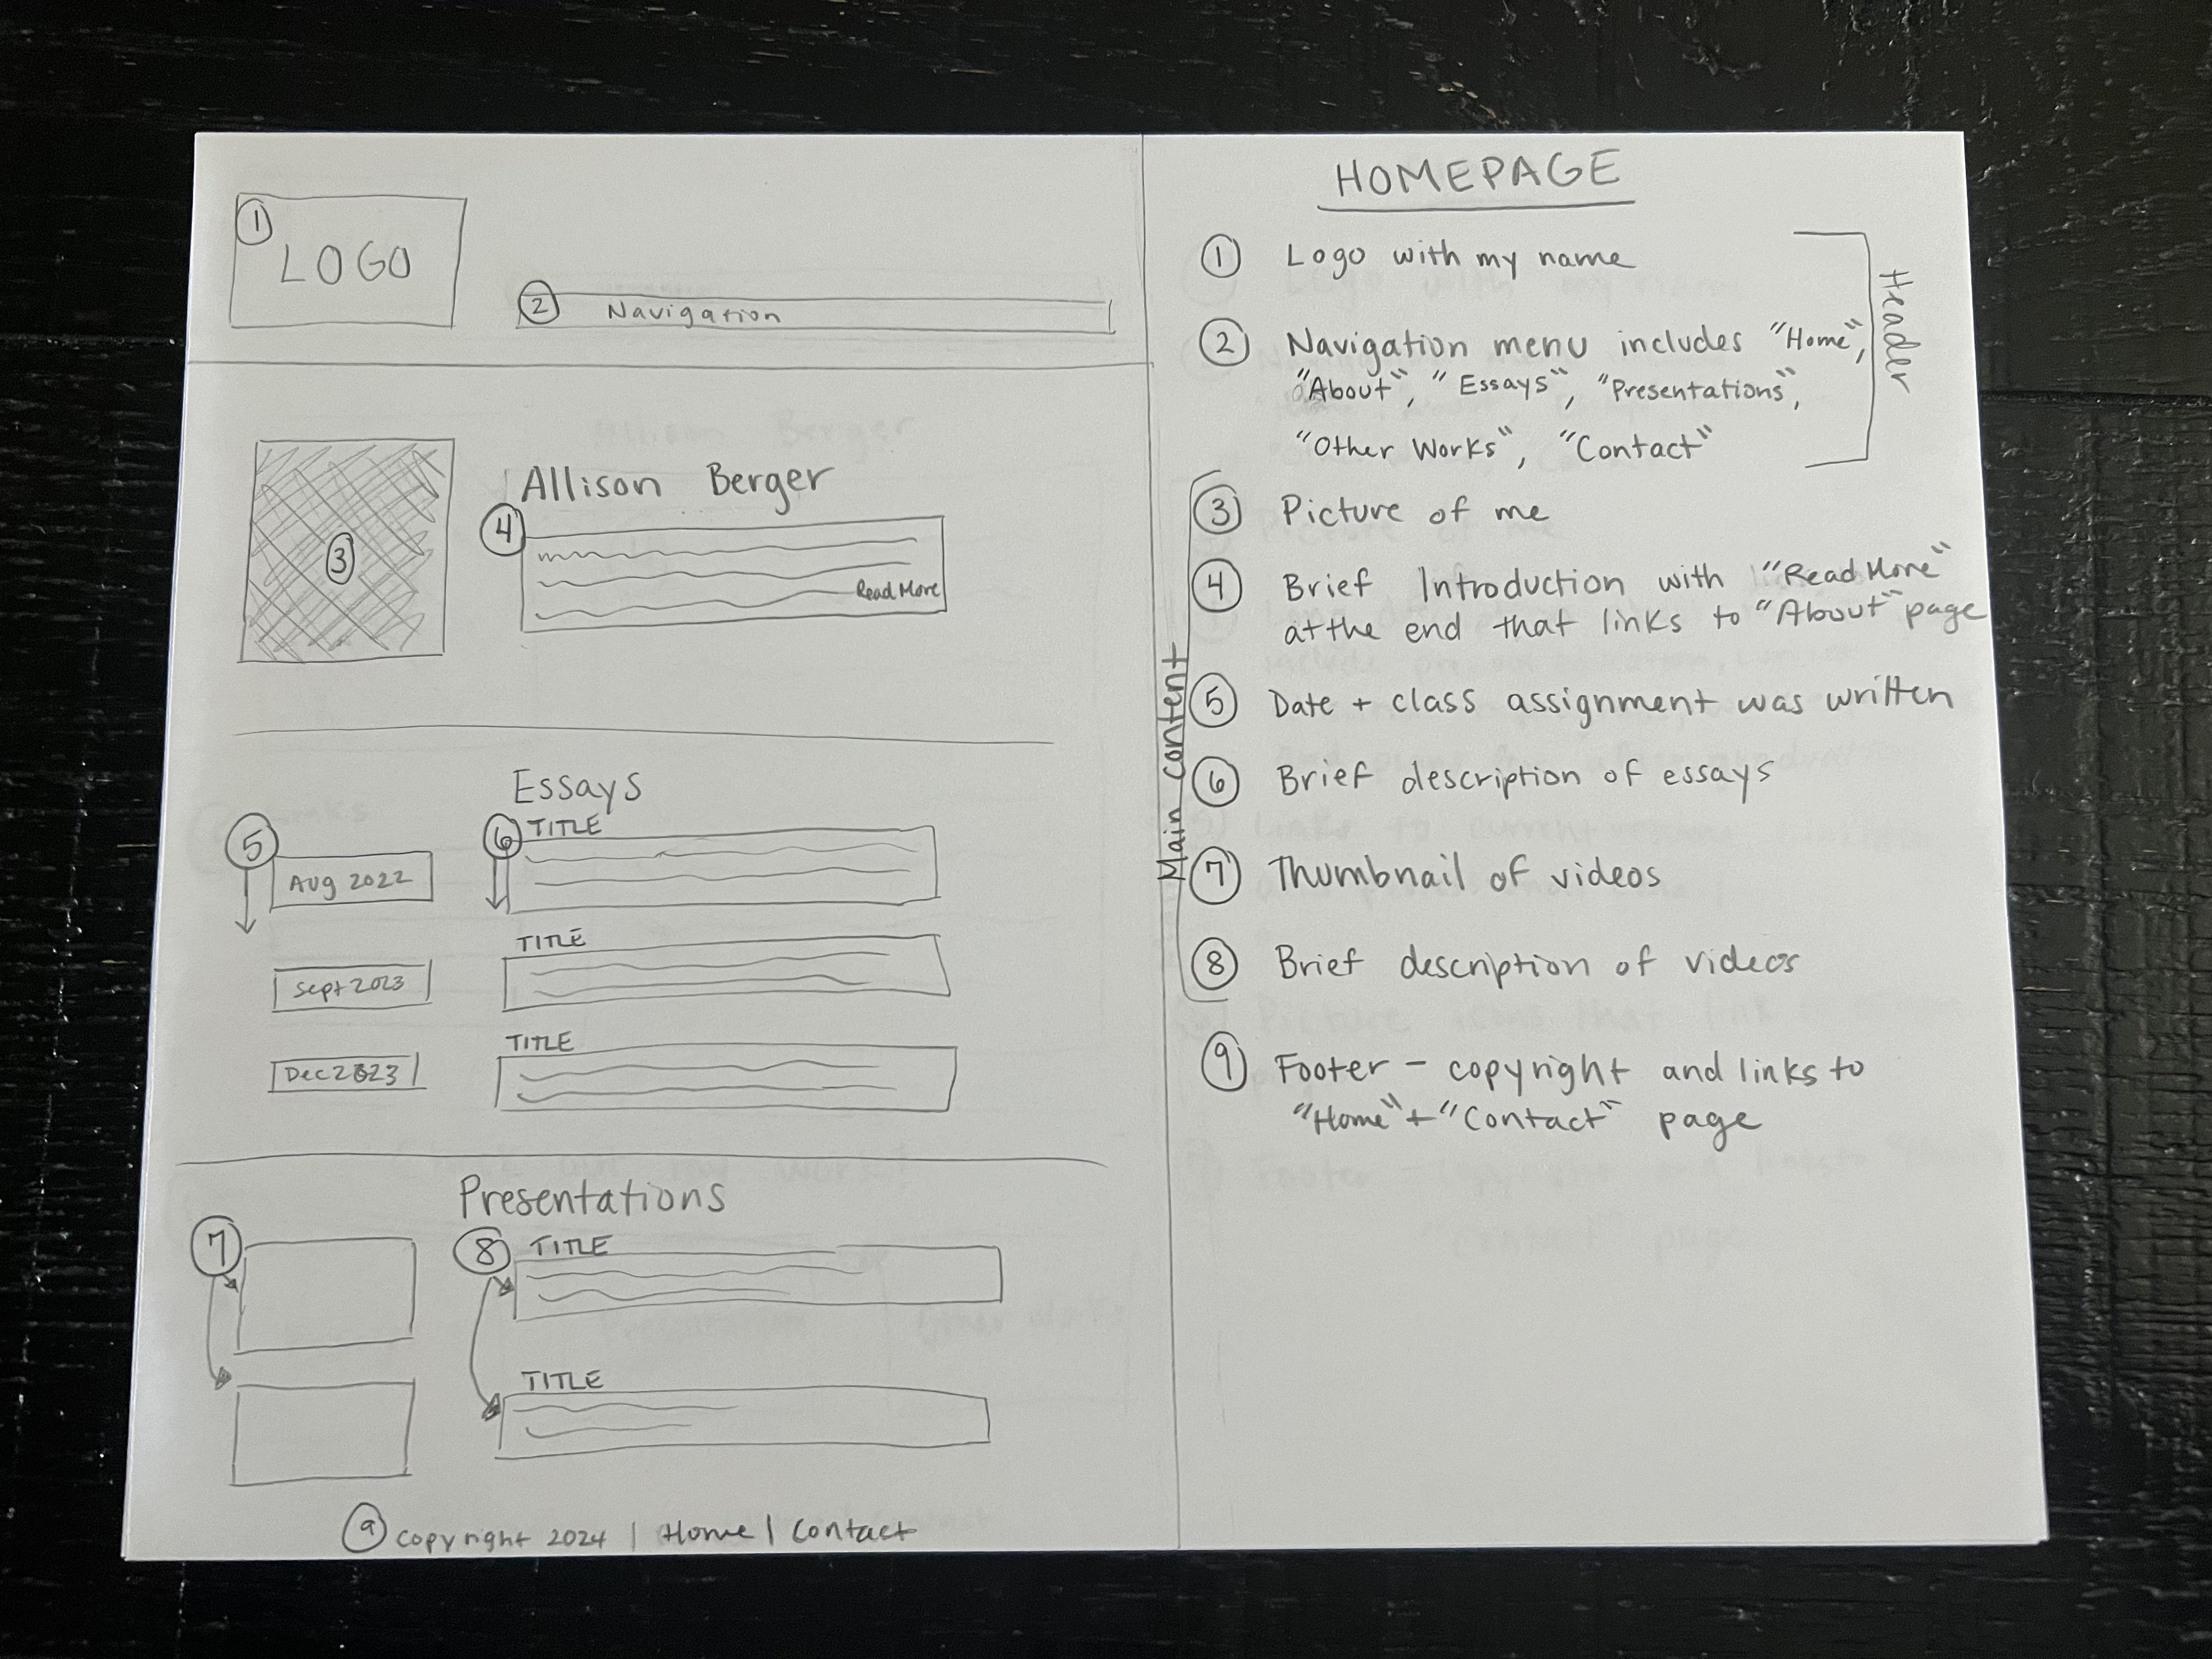 1
LOGO
2 Navigation
3
Allison Berger
4
Read More
Essays
5
6 TITLE
Aug 2022
TITLE
Sept 2023
TITLE
Dec 2023
Presentations
7
8 TITLE
TITLE
9 copyright 2024 | Home | Contact
HOMEPAGE
1 Logo with my name
2 Navigation menu includes "Home",
"About", "Essays", "Presentations",
"Other Works", "Contact"
Header
3 Picture of me
4 Brief Introduction with "Read More"
at the end that links to "About" page
5 Date + class assignment was written
6 Brief description of essays
7 Thumbnail of videos
8 Brief description of videos
Main content
9 Footer - copyright and links to
"Home" + "Contact" page